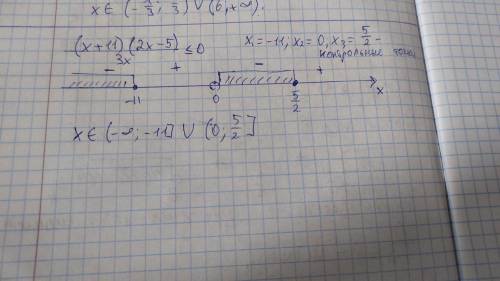 x ∈ (-2/3; 1/3) ∪ (6; +∞).
(x+11)(2x-5)/3x ≤ 0
x₁ = -11, x₂ = 0, x₃ = 5/2 -
контрольные точки
- + - +
-11 0 5/2 x
x ∈ (-∞; -11] ∪ (0; 5/2]